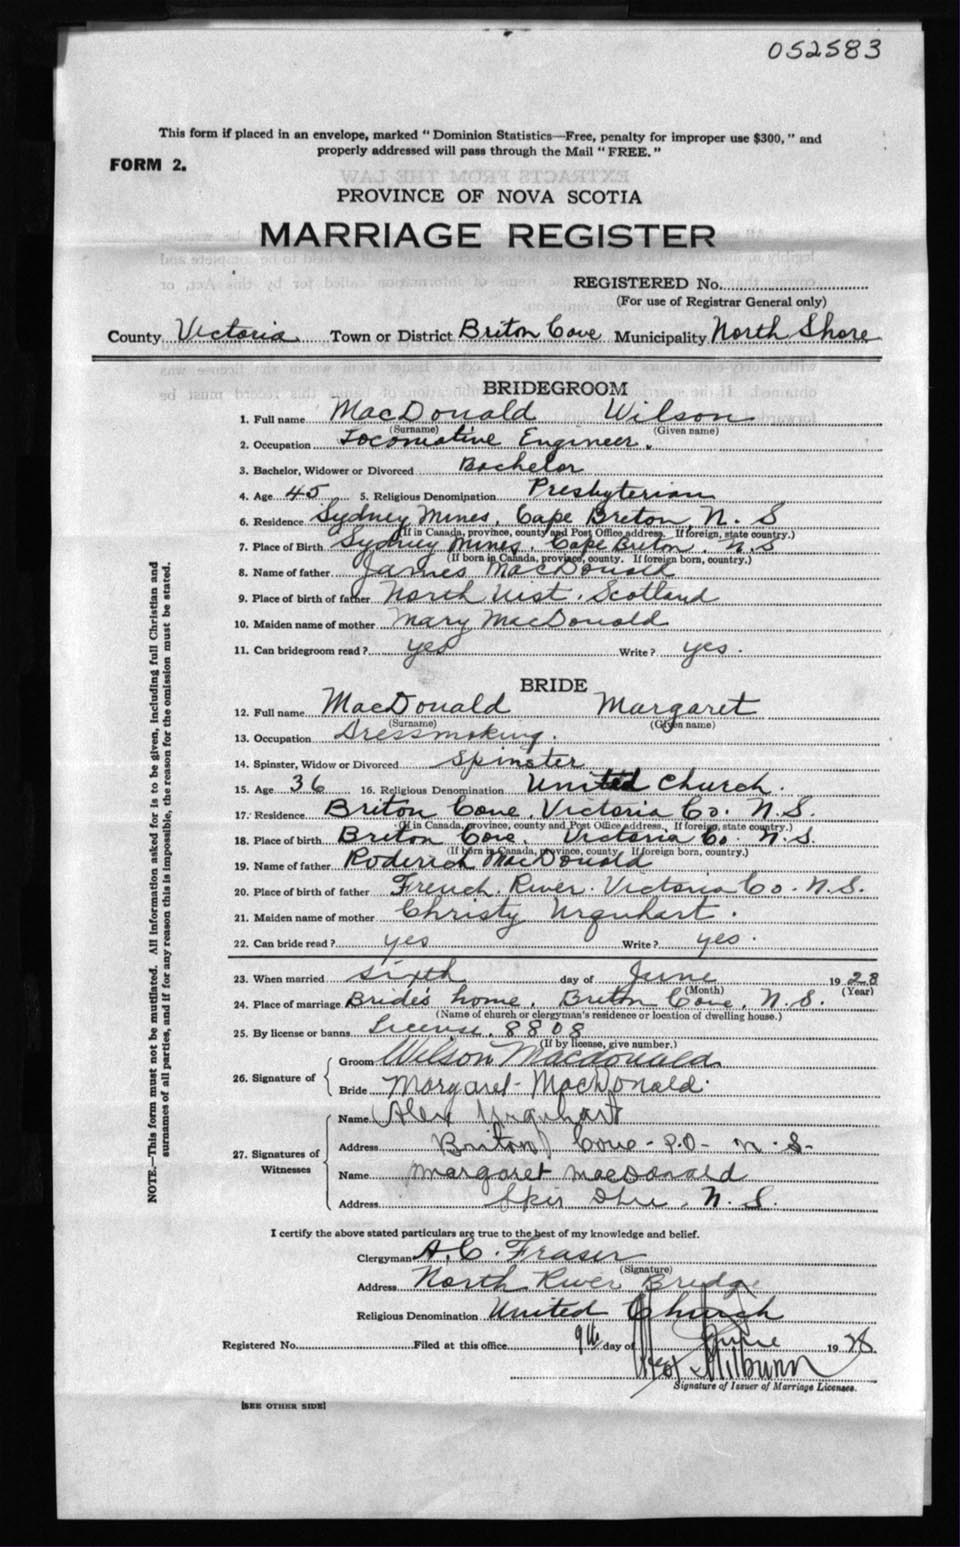 052583
This form if placed in an envelope, marked "Dominion Statistics—Free, penalty for improper use $300," and
properly addressed will pass through the Mail "FREE."
FORM 2.
EXTRACTS FROM THE LAW
PROVINCE OF NOVA SCOTIA
MARRIAGE REGISTER
REGISTERED No.
(For use of Registrar General only)
County Victoria Town or District Briton Cove Municipality North Shore
BRIDEGROOM
1. Full name MacDonald Wilson
(Surname) (Given name)
2. Occupation Locomotive Engineer.
3. Bachelor, Widower or Divorced Bachelor
4. Age 45 5. Religious Denomination Presbyterian
6. Residence Sydney Mines, Cape Breton, N. S
(If in Canada, province, county and Post Office address. If foreign, state country.)
7. Place of Birth Sydney Mines, Cape Breton, N.S
(If born in Canada, province, county. If foreign born, country.)
8. Name of father James MacDonald
9. Place of birth of father North Uist, Scotland
10. Maiden name of mother Mary MacDonald
11. Can bridegroom read? yes Write? yes.
BRIDE
12. Full name MacDonald Margaret
(Surname) (Given name)
13. Occupation Dressmaking.
14. Spinster, Widow or Divorced Spinster
15. Age 36 16. Religious Denomination United Church.
17. Residence Briton Cove, Victoria Co. N.S.
(If in Canada, province, county and Post Office address, If foreign, state country.)
18. Place of birth Briton Cove, Victoria Co. N.S.
(If born in Canada, province, county. If foreign born, country.)
19. Name of father Roderick MacDonald
20. Place of birth of father French River. Victoria Co. N.S.
21. Maiden name of mother Christy Urquhart.
22. Can bride read? yes Write? yes.
23. When married sixth day of June 1928
(Month) (Year)
24. Place of marriage Brides home, Briton Cove, N.S.
(Name of church or clergyman's residence or location of dwelling house.)
25. By license or banns License. 8808
(If by license, give number.)
26. Signature of Groom Wilson Macdonald
Bride Margaret MacDonald.
27. Signatures of Witnesses Name Alex Urquhart
Address Briton Cove - P.O - N. S.
Name Margaret MacDonald
Address Skir Dhu, N. S.
I certify the above stated particulars are true to the best of my knowledge and belief.
Clergyman A. C. Fraser
(Signature)
Address North River Bridge
Religious Denomination United Church
Registered No. Filed at this office 9th day of June 1928
Signature of Issuer of Marriage Licenses.
[SEE OTHER SIDE]
NOTE.—This form must not be mutilated. All information asked for is to be given, including full Christian and
surnames of all parties, and if for any reason this is impossible, the reason for the omission must be stated.